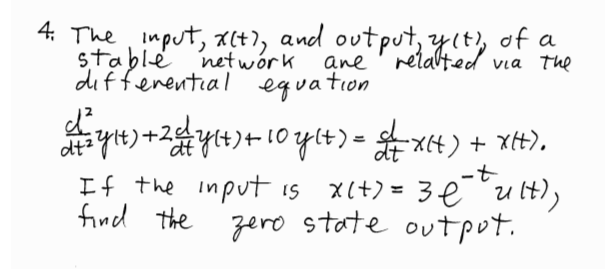 4. The input, x(t), and output, y(t), of a
stable network are related via the
differential equation
d²/dt² y(t) + 2 d/dt y(t) + 10 y(t) = d/dt x(t) + x(t).
If the input is x(t) = 3e^-t u(t),
find the zero state output.